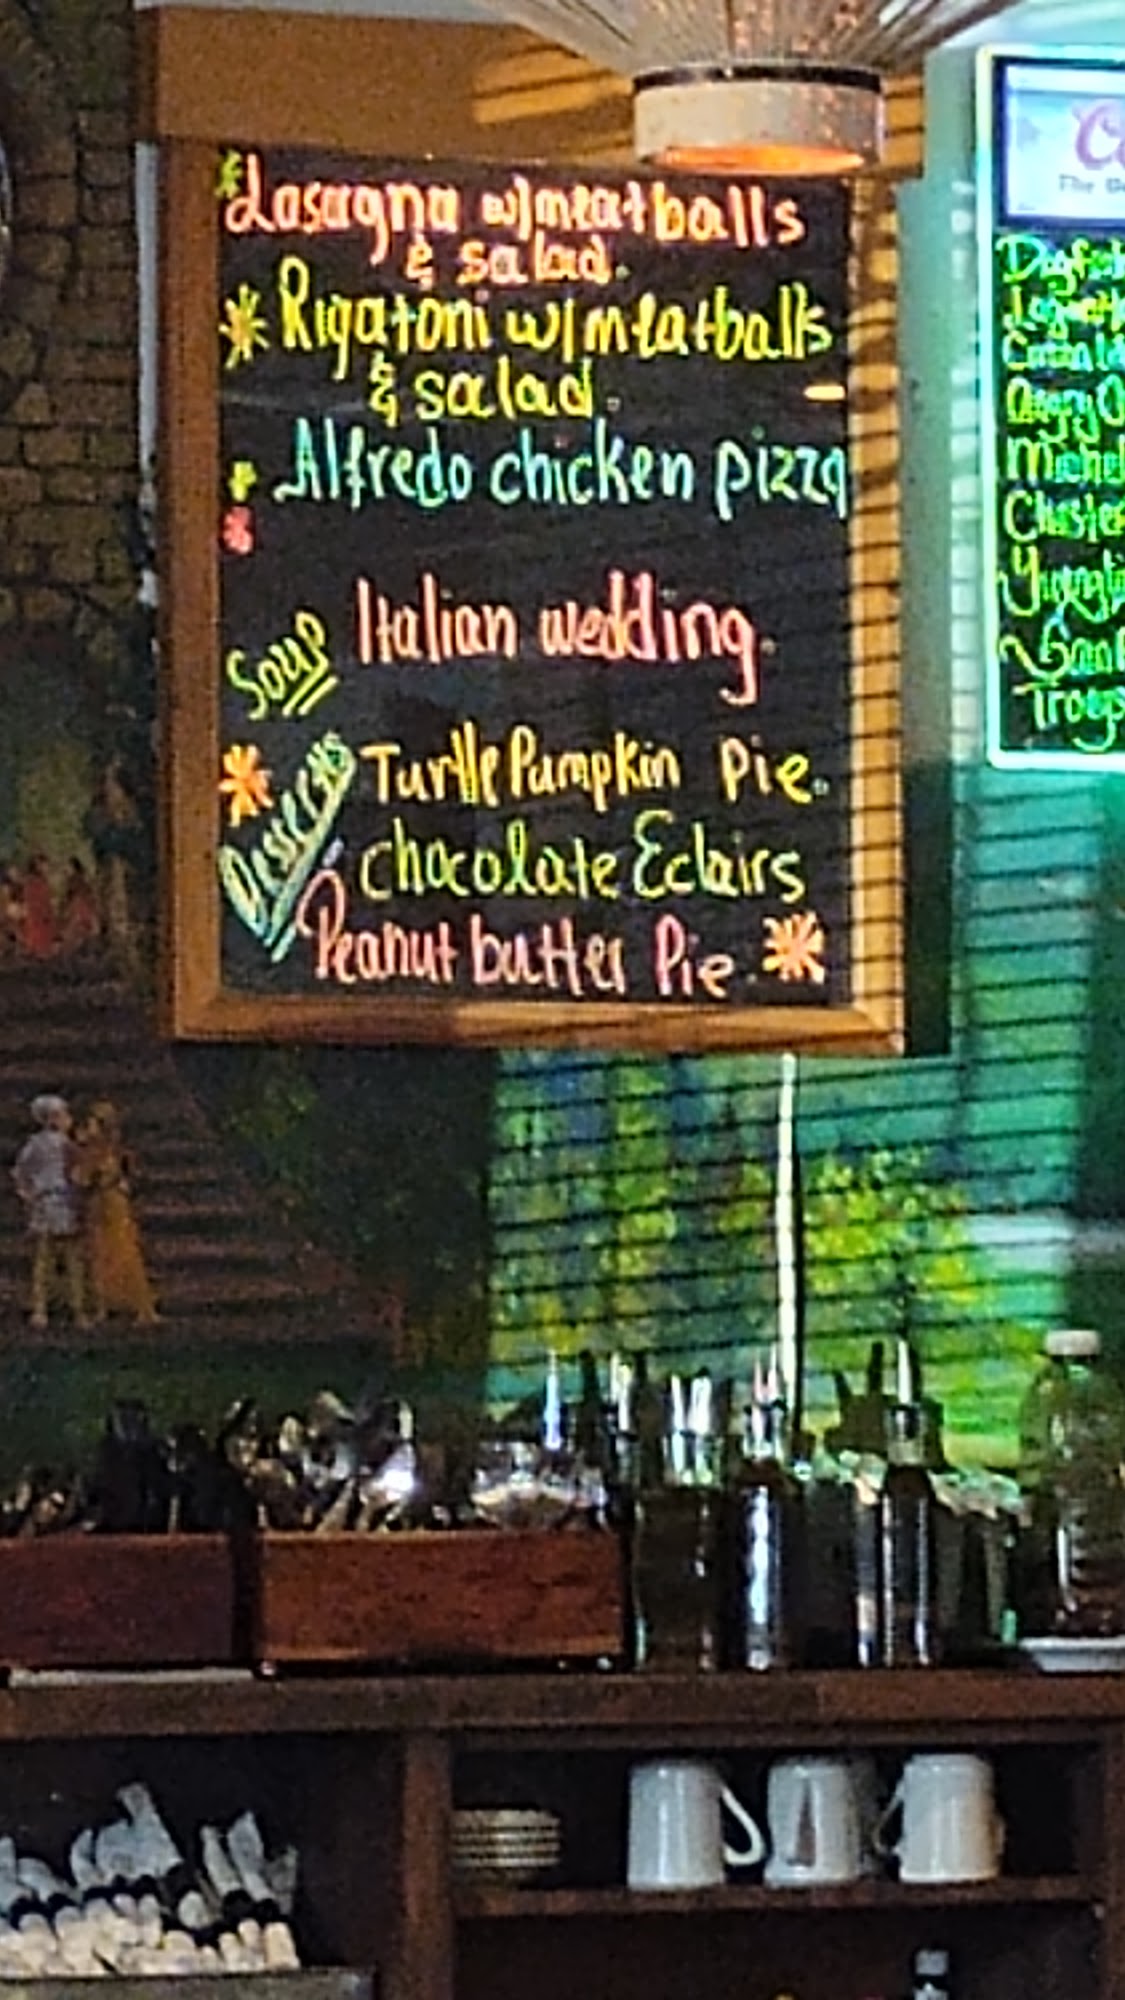 Lasagna w/meatballs
& salad.
Rigatoni w/meatballs
& salad.
Alfredo chicken pizza
Soup
Italian wedding.
Desserts
Turtle Pumpkin Pie.
chocolate Eclairs
Peanut butter Pie.
The
Angry
Troegs